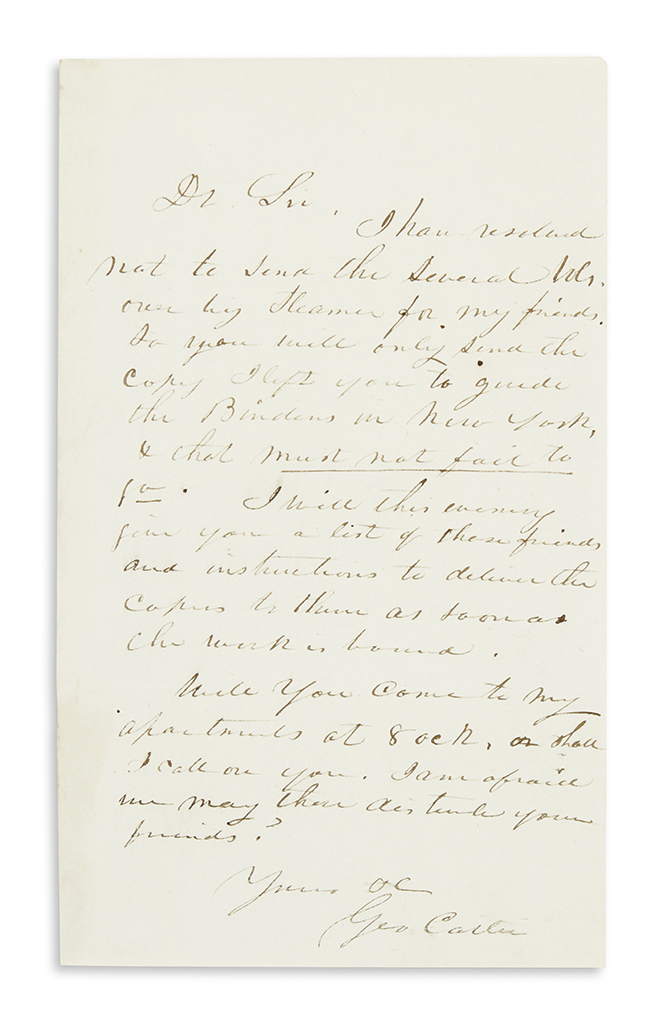 Dr Sir,
I have resolved
not to send the several Vols.
over by Steamer for my friends.
So you will only send the
copy I left you to guide
the Binders in New York,
& that must not fail to
go. I will this evening
give you a list of these friends
and instructions to deliver the
copies to them as soon as
the work is bound.
Will You come to my
apartments at 8 ock, or shall
I call on you. I am afraid
we may there disturb your
friends?
Yours &c
Geo Catlin